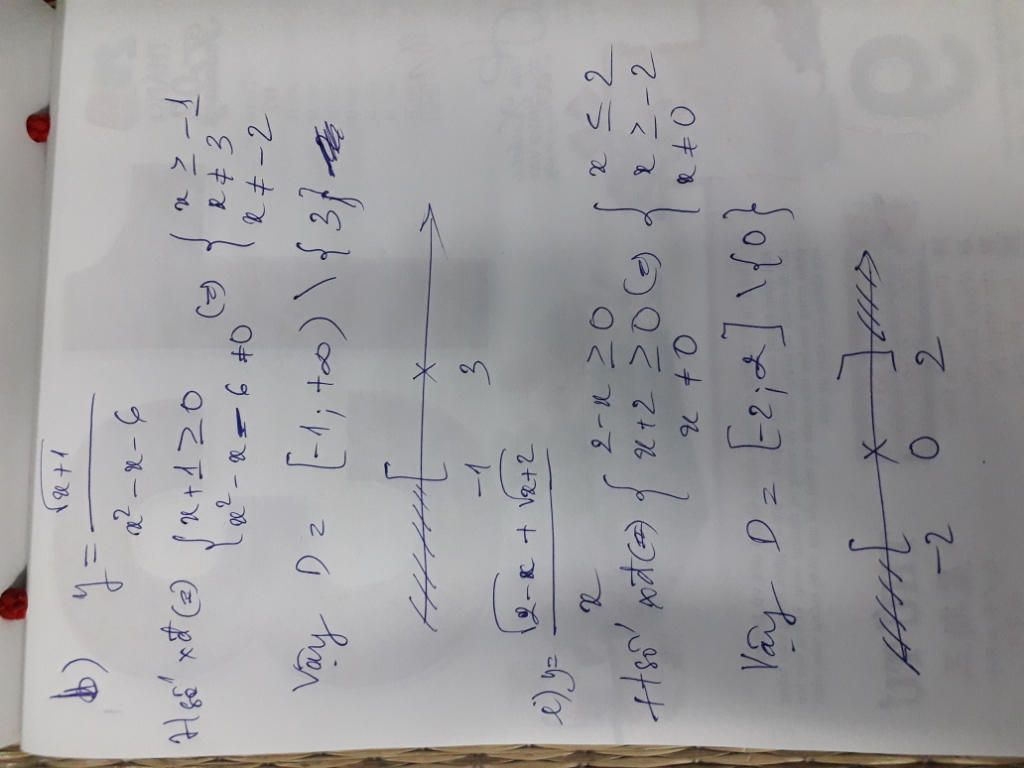 b) y = √(x+1) / (x² - x - 6)
Hsố xđ (=) { x + 1 ≥ 0 (=) { x ≥ -1
x² - x - 6 ≠ 0 x ≠ 3
x ≠ -2
Vậy D = [-1; +∞) \ {3}
-1 3
e) y = (√(2-x) + √(x+2)) / x
Hsố xđ (=) { 2 - x ≥ 0 (=) { x ≤ 2
x + 2 ≥ 0 x ≥ -2
x ≠ 0 x ≠ 0
Vậy D = [-2; 2] \ {0}
-2 0 2